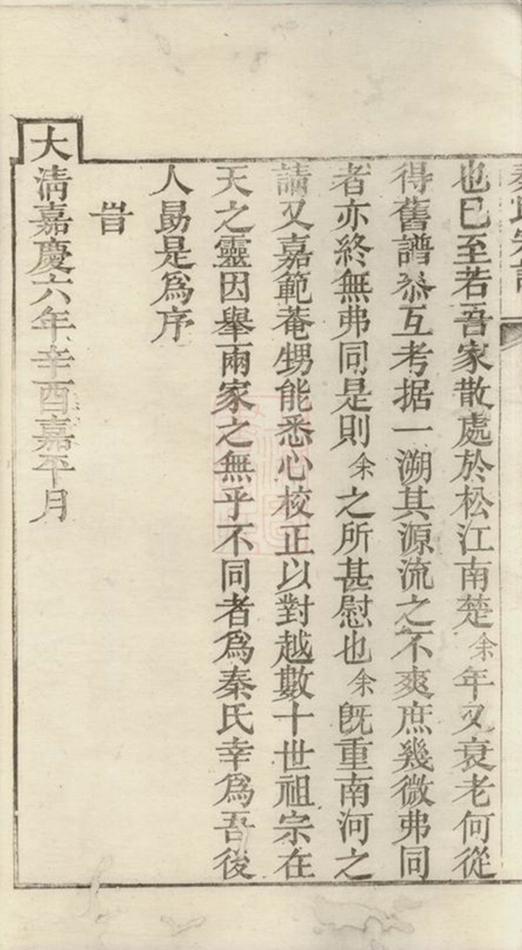 秦氏宗譜
也已至若吾家散處於松江南楚余年又衰老何從
得舊譜叅互考据一溯其源流之不爽庶幾微弗同
者亦終無弗同是則余之所甚慰也余旣重南河之
請又嘉範菴甥能悉心校正以對越數十世祖宗在
天之靈因舉兩家之無乎不同者爲秦氏幸爲吾後
人勗是爲序
旹
大淸嘉慶六年辛酉嘉平月